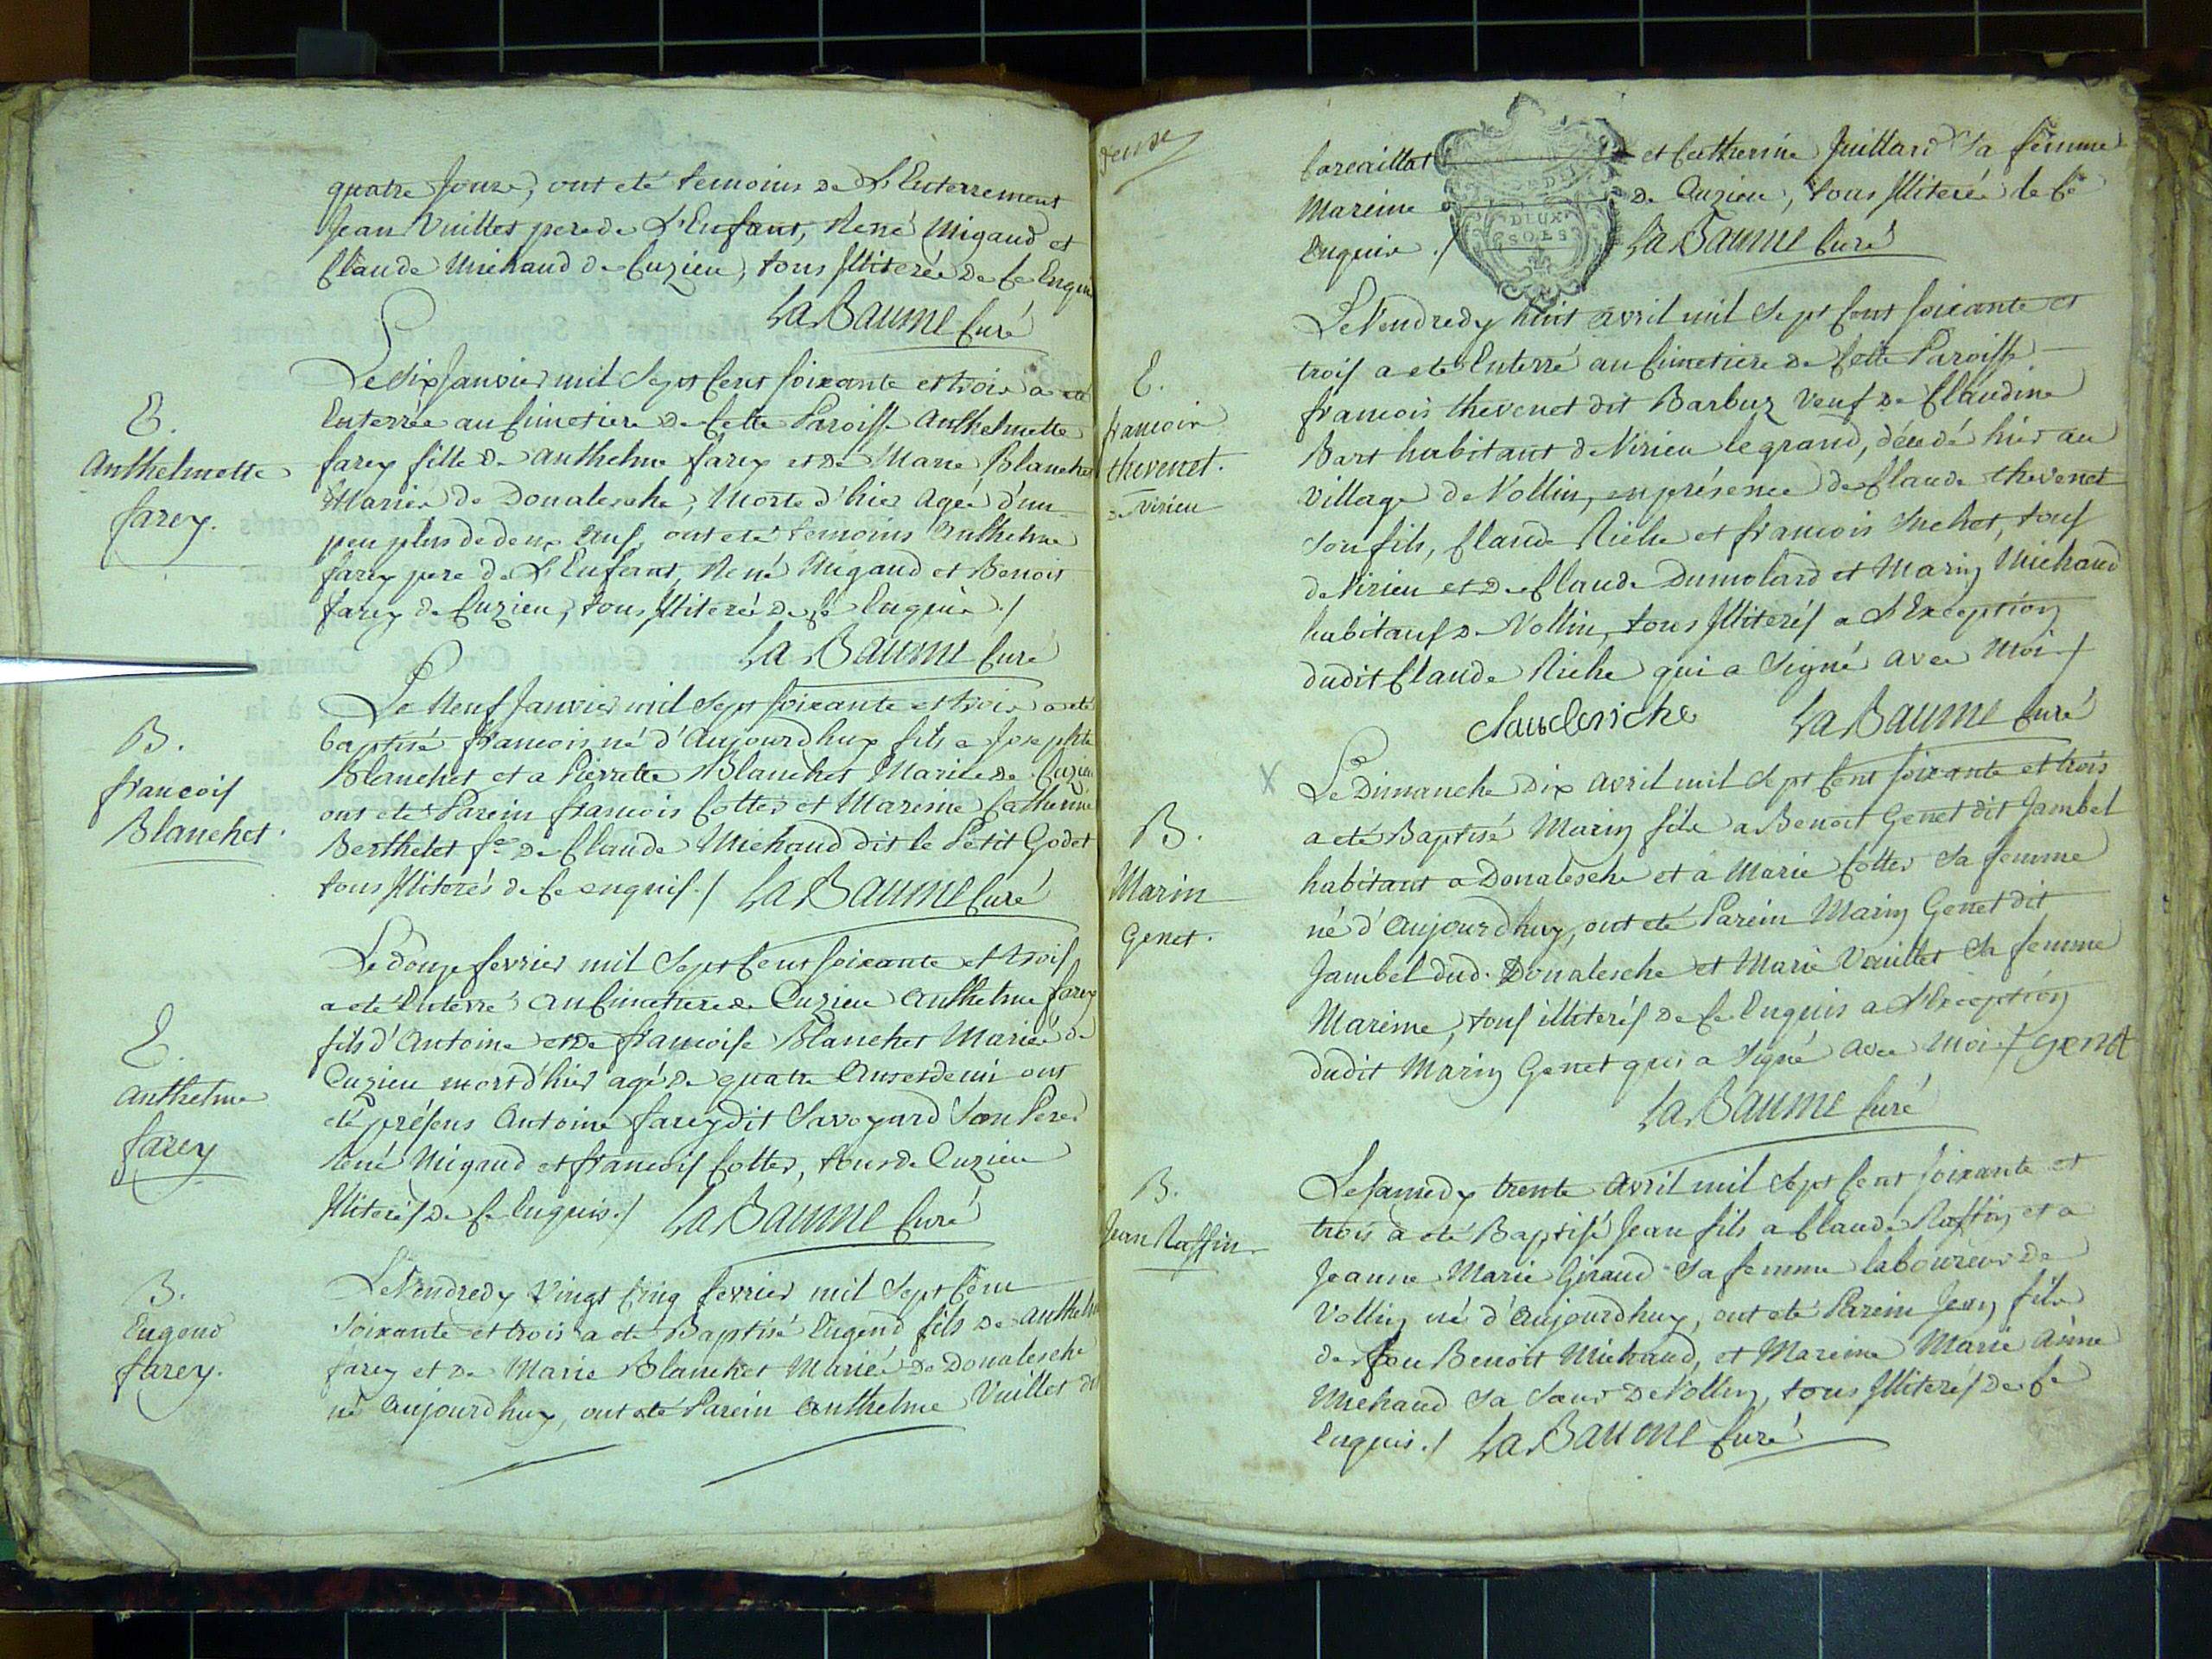 quatre Jours, ont eté temoins de L'Enterrement
Jean Vuillet pere de L'Enfant, René Migaud et
Claude Michaud de Cuzieu, tous Illiterés de ce
La Baume Curé
Le Six Janvier mil Sept Cent soixante et trois a eté
E.
Anthelmette
farey.
Enterrée au Cimetiere de Cette Paroisse Anthelmette
farey fille de Anthelme farey et de Marie Blanchet
Mariés de Donalesche, Morte d'hier agée d'un
peu plus de deux Ans, ont eté temoins Anthelme
farey pere de L'Enfant, René Migaud et Benoit
farey de Cuzieu, tous Illiterés de ce Enquis ./
La Baume Curé
Le Neuf Janvier mil Sept soixante et trois a eté
B.
francois
Blanchet.
baptisé francois né d'Aujourdhuy fils a Josephte
Blanchet et a Pierrette Blanchet Mariés de Cuzieu
ont eté Parein francois Cotter et Mareine Catherine
Berthelet fe. de Claude Michaud dit le Petit Godet
tous Illiterés de ce enquis ./ La Baume Curé
Le Douze fevrier mil Sept Cent soixante et trois
E.
Anthelme
farey
a eté Enterré au Cimetiere de Cuzieu Anthelme farey
fils d'Antoine et de francoise Blanchet Mariés de
Cuzieu mort d'hier agé de quatre Ans et demi ont
eté présens Antoine farey dit Savoyard Son Pere
René Migaud et francois Cotter, tous de Cuzieu
Illiterés de ce Enquis ./ La Baume Curé
B.
Eugend
farey.
Le Vendredy Vingt Cinq fevrier mil Sept Cent
soixante et trois a eté Baptisé Eugend fils de Anthelme
farey et de Marie Blanchet Mariés de Donalesche
né Aujourdhuy, ont eté Parein Anthelme Vuillet dit
Careaillat et Catherine Juillard Sa femme
Mareine de Cuzieu, tous Illiterés de ce
DEUX
SOLS
Enquis ./ La Baume Curé
Le Vendredy huit avril mil Sept Cent soixante et
E.
francois
thevenet.
de virieu
trois a eté Enterré au Cimetiere de Cette Paroisse
francois thevenet dit Barbuz Veuf de Claudine
Bart habitant de Virieu le grand, décedé hier au
Village de Vollin, en présence de Claude thevenet
Son fils, Claude Riche et francois Suchet, tous
de Virieu et de Claude Dumolard et Marin Michaud
habitans de Vollin, tous Illiterés a L'Exception
dudit Claude Riche qui a Signé avec Moi ./
Claude riche La Baume Curé
X
B.
Marin
Genet.
Le Dimanche Dix Avril mil Sept Cent soixante et trois
a eté Baptisé Marin fils a Benoit Genet dit Jambel
habitant a Donalesche et a Marie Cotter Sa femme
né d'Aujourdhuy, ont eté Parein Marin Genet dit
Jambel dud. Donalesche et Marie Vuillet Sa femme
Mareine, tous illiterés de ce Enquis a L'Exception
dudit Marin Genet qui a Signé avec Moi ./ genet
La Baume Curé
B.
Jean Raffin
Le Samedy trente Avril mil Sept Cent soixante et
trois a eté Baptisé Jean fils a Claude Raffin et a
Jeanne Marie Giraud Sa femme laboureur de
Vollin né d'Aujourdhuy, ont eté Parein Jean fils
de feu Benoit Michaud, et Mareine Marie Anne
Michaud Sa Sœur de Vollin, tous Illiterés de ce
Enquis ./ La Baume Curé